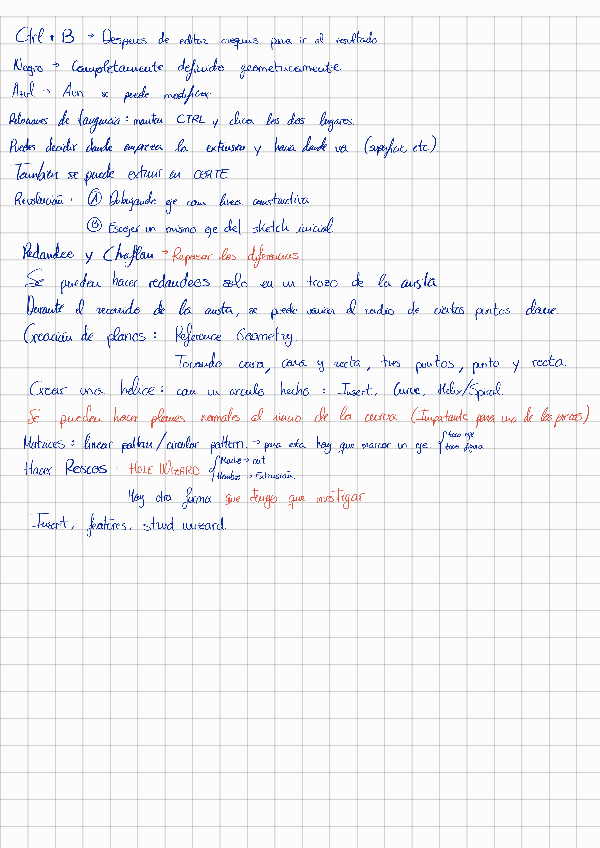 Ctrl + B → Despues de editar croquis para ir al resultado
Negro → Completamente definido geometricamente.
Azul → Aun se puede modificar
Relaciones de tangencia: mantén CTRL y clica los dos lugares.
Puedes decidir donde empieza la extrusion y hacia donde va (superficie, etc)
También se puede extruir en CORTE
Revolución: Ⓐ Dibujando eje con linea constructiva
Ⓑ Escoger un mismo eje del sketch inicial
Redondeo y Chaflan → Repasar las diferencias
Se pueden hacer redondeos solo en un trozo de la arista
Durante el recorrido de la arista, se puede variar el radio de ciertos puntos clave.
Creación de planos: Reference Geometry.
Tocando cara, cara y recta, tres puntos, punto y recta.
Crear una helice: con un circulo hecho: Insert, Curve, Helix/Spiral.
Se pueden hacer planos normales al inicio de la curva (Importante para una de las piezas)
Matrices: linear pattern/circular pattern. → para esta hay que marcar un eje.
Hacer Roscas: HOLE WIZARD { Macho → cut
Hembra → Extrusión.
Hay otra forma que tengo que investigar
Insert, features, stud wizard.